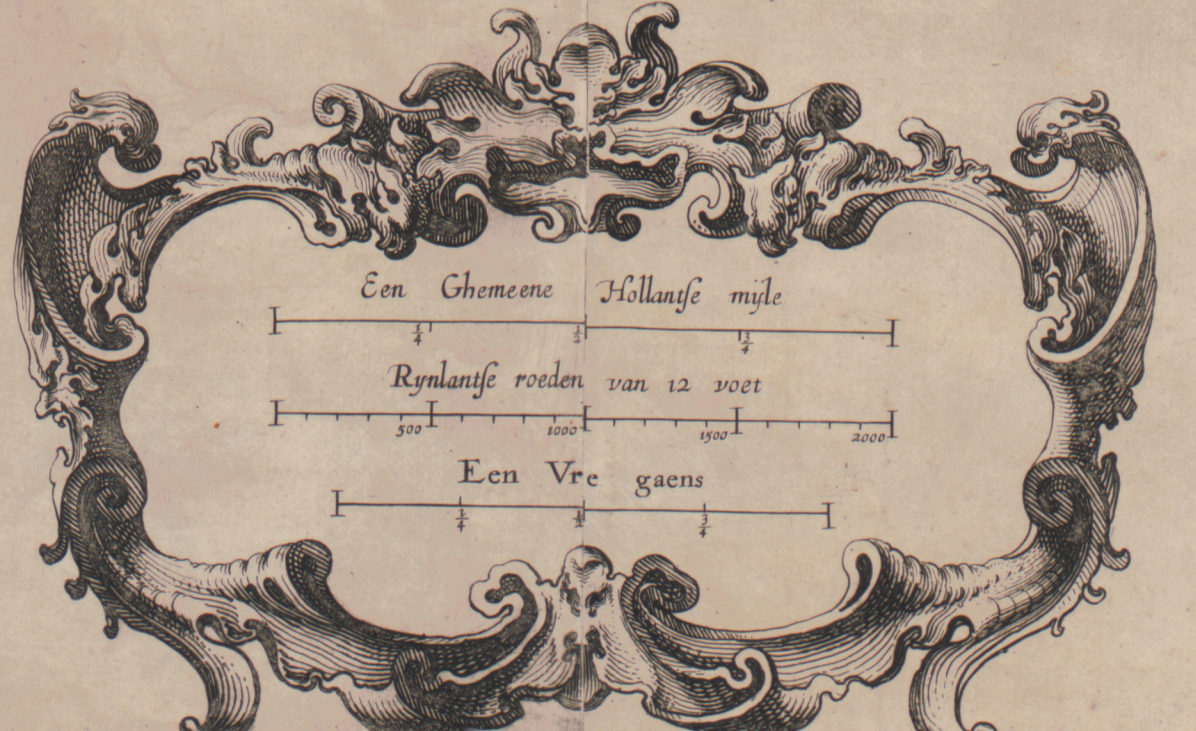 Een Ghemeene Hollantſe mijle
1/4 1/2 3/4
Rynlantſe roeden van 12 voet
500 1000 1500 2000
Een Vre gaens
1/4 1/2 3/4